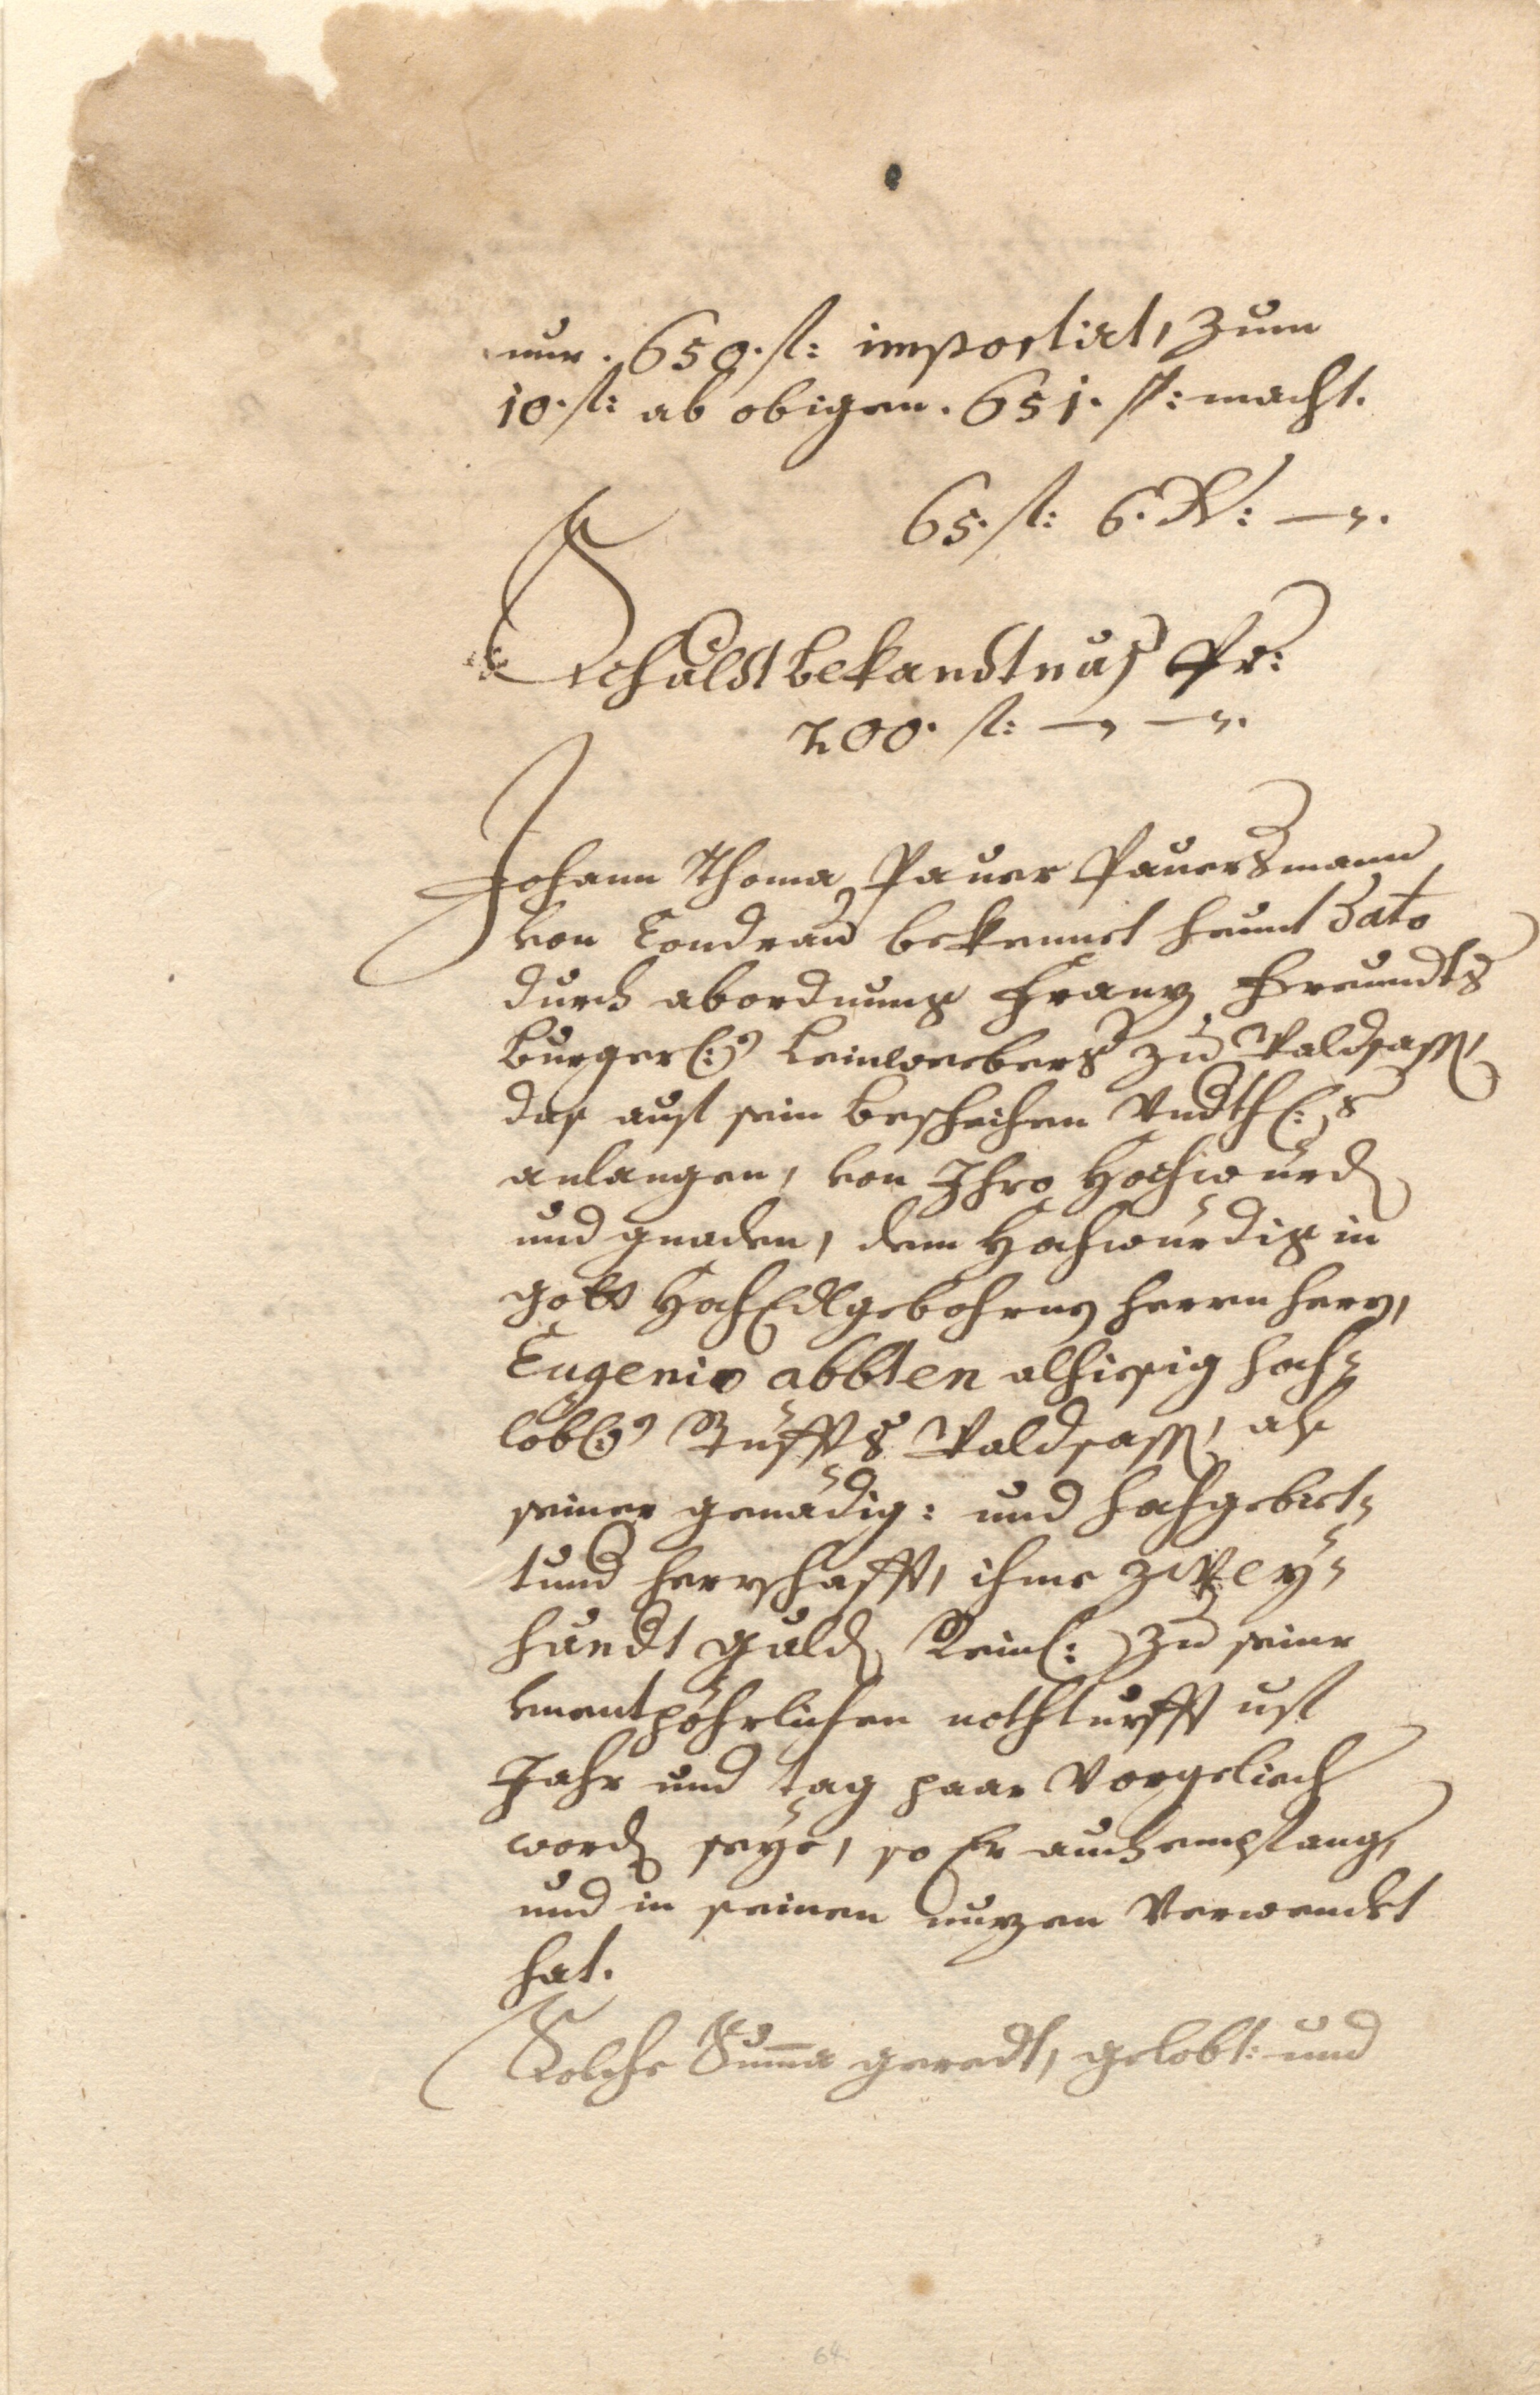 nur. 650. fl: importirt, zum
10. fl: ab obigen. 651. fl: macht.
65. fl: 6. kr: —.
Schuldtbekandtnuß Pr:
200. fl: — —.
Johann Thoma Pauer Pauersmann
von Condrau bekennet heunt Dato
durch abordnung Franz Freundts
burger(:) Leinwebers zu Waldsass,
das auf sein beschehen Undth(:)s
anlangen, von Ihro Hochwürd
und gnaden, dem Hochwürdig in
gott HochEdlgebohrnen herrn herrn,
Eugenio abbten alhiesig hoch-
löb(:) Stüffts Waldsass, als
seiner genädig: und hochgebiet-
tund herrschafft, ihme zwey-
hundt guld Rein(: zu seiner
unentpöhrlichen nothturfft uf
Jahr und tag paar Vorgeliech
word seye, so Er auch empfang,
und in seinen nuzen Verwendet
hat.
Solche Summa geredt, gelobt: und
64.